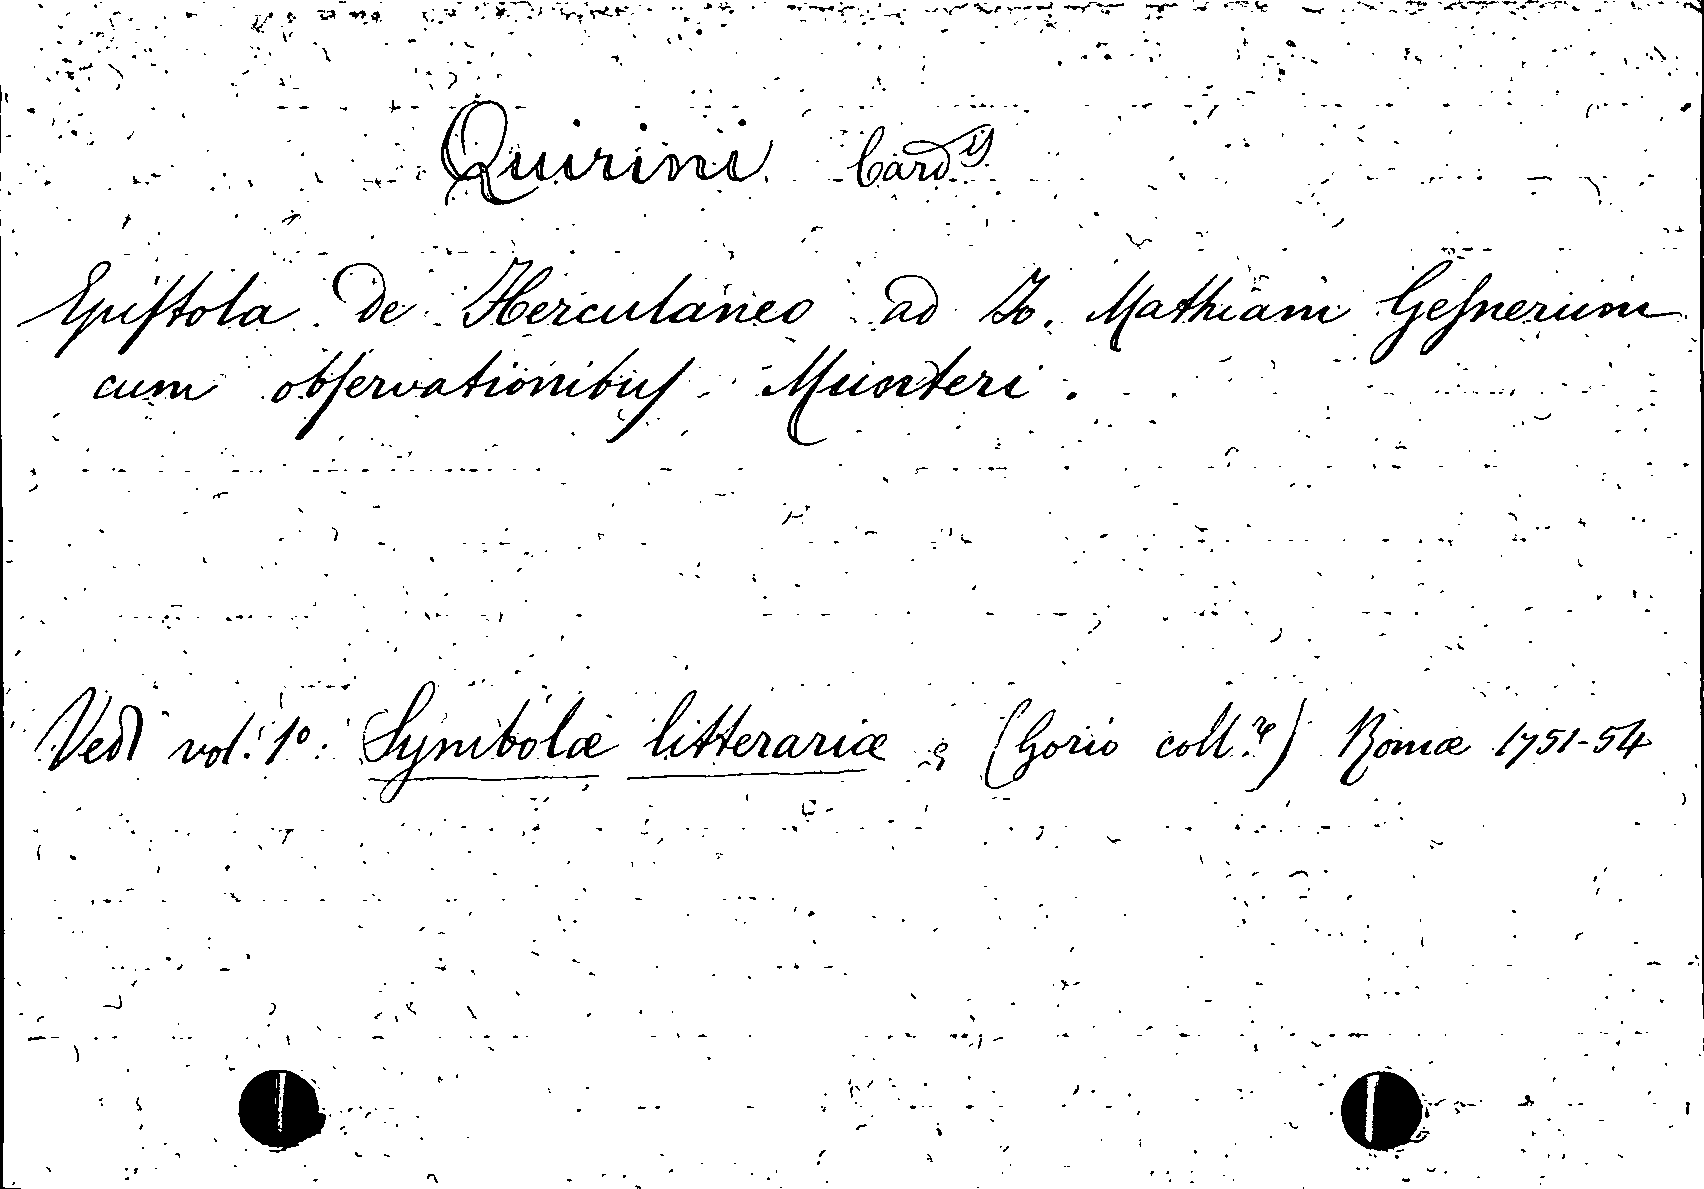 Quirini Card.lis
Epiſtola de Herculaneo ad Io. Mathiam Geſnerum
cum obſervationibuſ Munteri.
Vedi vol. 1º. Symbolæ litterariæ (Gorio coll.re) Romæ 1751-54